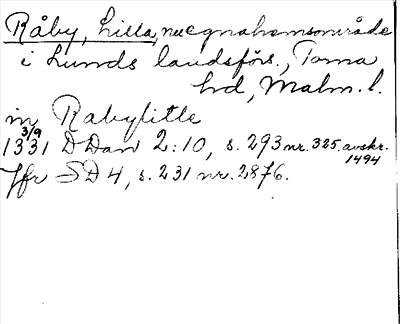 Råby, Lilla, nu egnahemsområde
i Lunds landsförs., Torna
hd, Malm. l.
in Rabylitle
1331 3/9 D Dan 2:10, s. 293 nr. 325. avskr. 1494
Jfr SD 4, s. 231 nr. 2876.